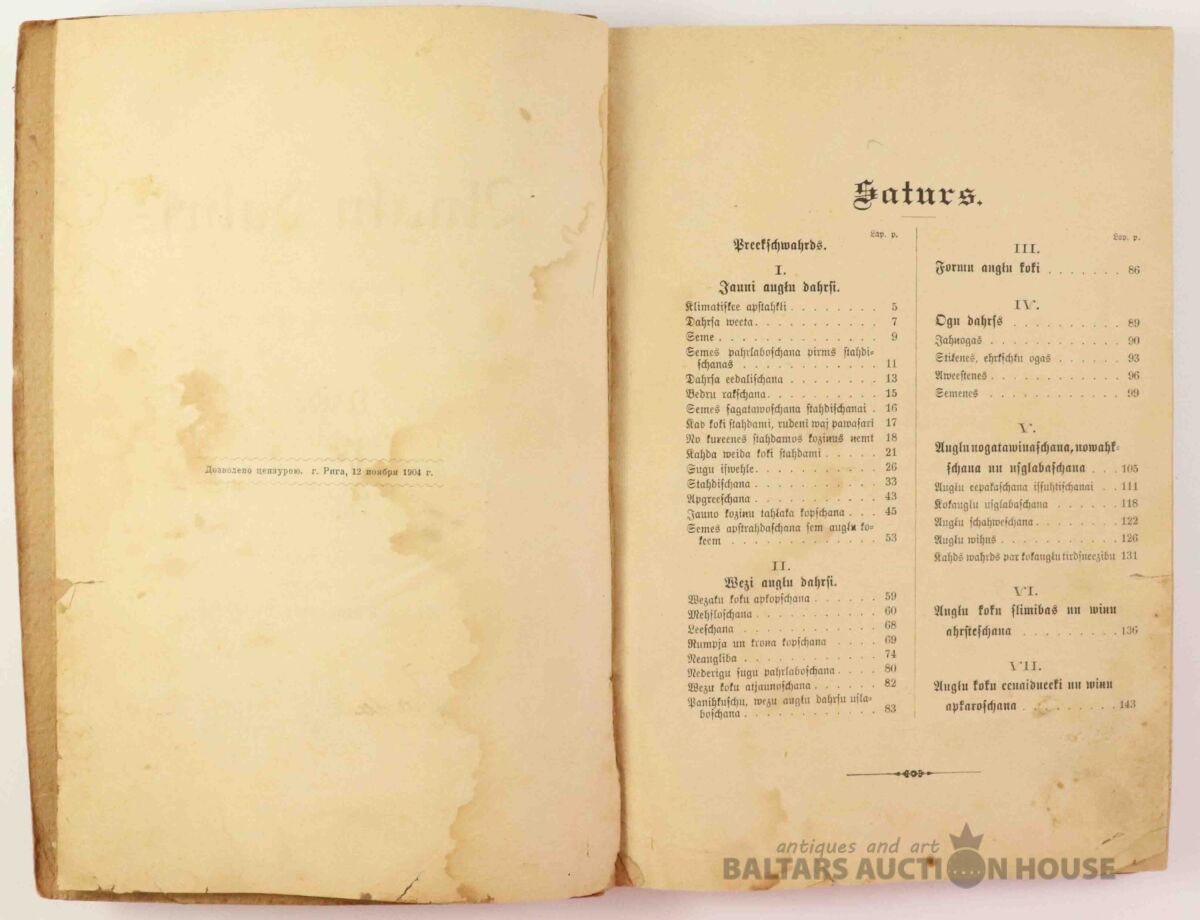 Дозволено цензурою. г. Рига, 12 ноября 1904 г.
Saturs.
Lap. p.
Preekſchwahrds.
I.
Jauni augļu dahrſi.
Klimatiſkee apſtahkli . . . . . . . . 5
Dahrſa weeta . . . . . . . . . . . 7
Seme . . . . . . . . . . . . . . . 9
Semes pahrlaboſchana pirms ſtahdi-
ſchanas . . . . . . . . . . . . 11
Dahrſa eedaliſchana . . . . . . . . 13
Bedru rakſchana . . . . . . . . . . 15
Semes ſagatawoſchana ſtahdiſchanai . 16
Kad koki ſtahdami, rudeni waj pawaſari 17
No kureenes ſtahdamos koziņus ņemt 18
Kahda weida koki ſtahdami . . . . . 21
Sugu iſwehle . . . . . . . . . . . 26
Stahdiſchana . . . . . . . . . . . 33
Apgreeſchana . . . . . . . . . . . 43
Jauno koziņu tahlaka kopſchana . . . 45
Semes apſtrahdaſchana ſem augļu ko-
keem . . . . . . . . . . . . . 53
II.
Wezi augļu dahrſi.
Wezaku koku apkopſchana . . . . . . 59
Mehſloſchana . . . . . . . . . . . 60
Leeſchana . . . . . . . . . . . . . 68
Rumpja un kroņa kopſchana . . . . . 69
Neaugliba . . . . . . . . . . . . . 74
Nederigu ſugu pahrlaboſchana . . . . 80
Wezu koku atjaunoſchana . . . . . . 82
Panihkuſchu, wezu augļu dahrſu uſla-
boſchana . . . . . . . . . . . . 83
Lap. p.
III.
Formu augļu koki . . . . . . . 86
IV.
Ogu dahrſs . . . . . . . . . . 89
Jahņogas . . . . . . . . . . . . . 90
Stikenes, ehrkſchku ogas . . . . . . 93
Aweeſtenes . . . . . . . . . . . . 96
Semenes . . . . . . . . . . . . . 99
V.
Augļu nogatawinaſchana, nowahk-
ſchana un uſglabaſchana . . . 105
Augļu eepakaſchana iſſuhtiſchanai . . 111
Kokaugļu uſglabaſchana . . . . . . 118
Augļu ſchahweſchana . . . . . . . . 122
Augļu wihns . . . . . . . . . . . . 126
Kahds wahrds par kokaugļu tirdſneezibu 131
VI.
Augļu koku ſlimibas un wiņu
ahrſteſchana . . . . . . . . . 136
VII.
Augļu koku eenaidneeki un wiņu
apkaroſchana . . . . . . . . . 143
antiques and art
BALTARS AUCTION HOUSE